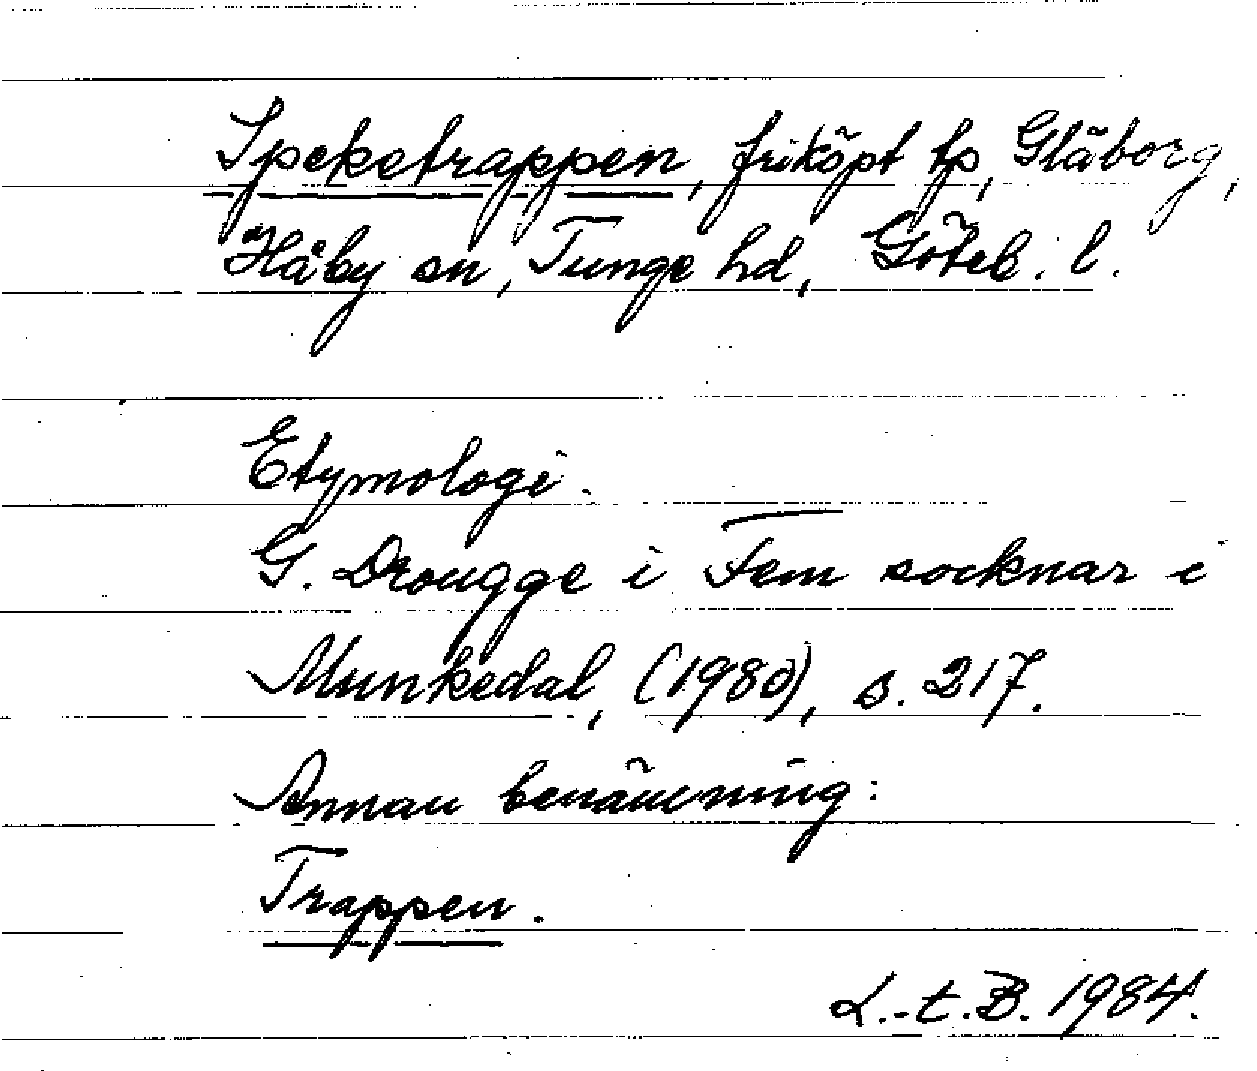 Speketrappen, friköpt tp, Gläborg,
Håby sn, Tunge hd, Göteb. l.
Etymologi.
G. Drougge i Fem socknar i
Munkedal, (1980), s. 217.
Annan benämning:
Trappen.
L.-t.B. 1984.